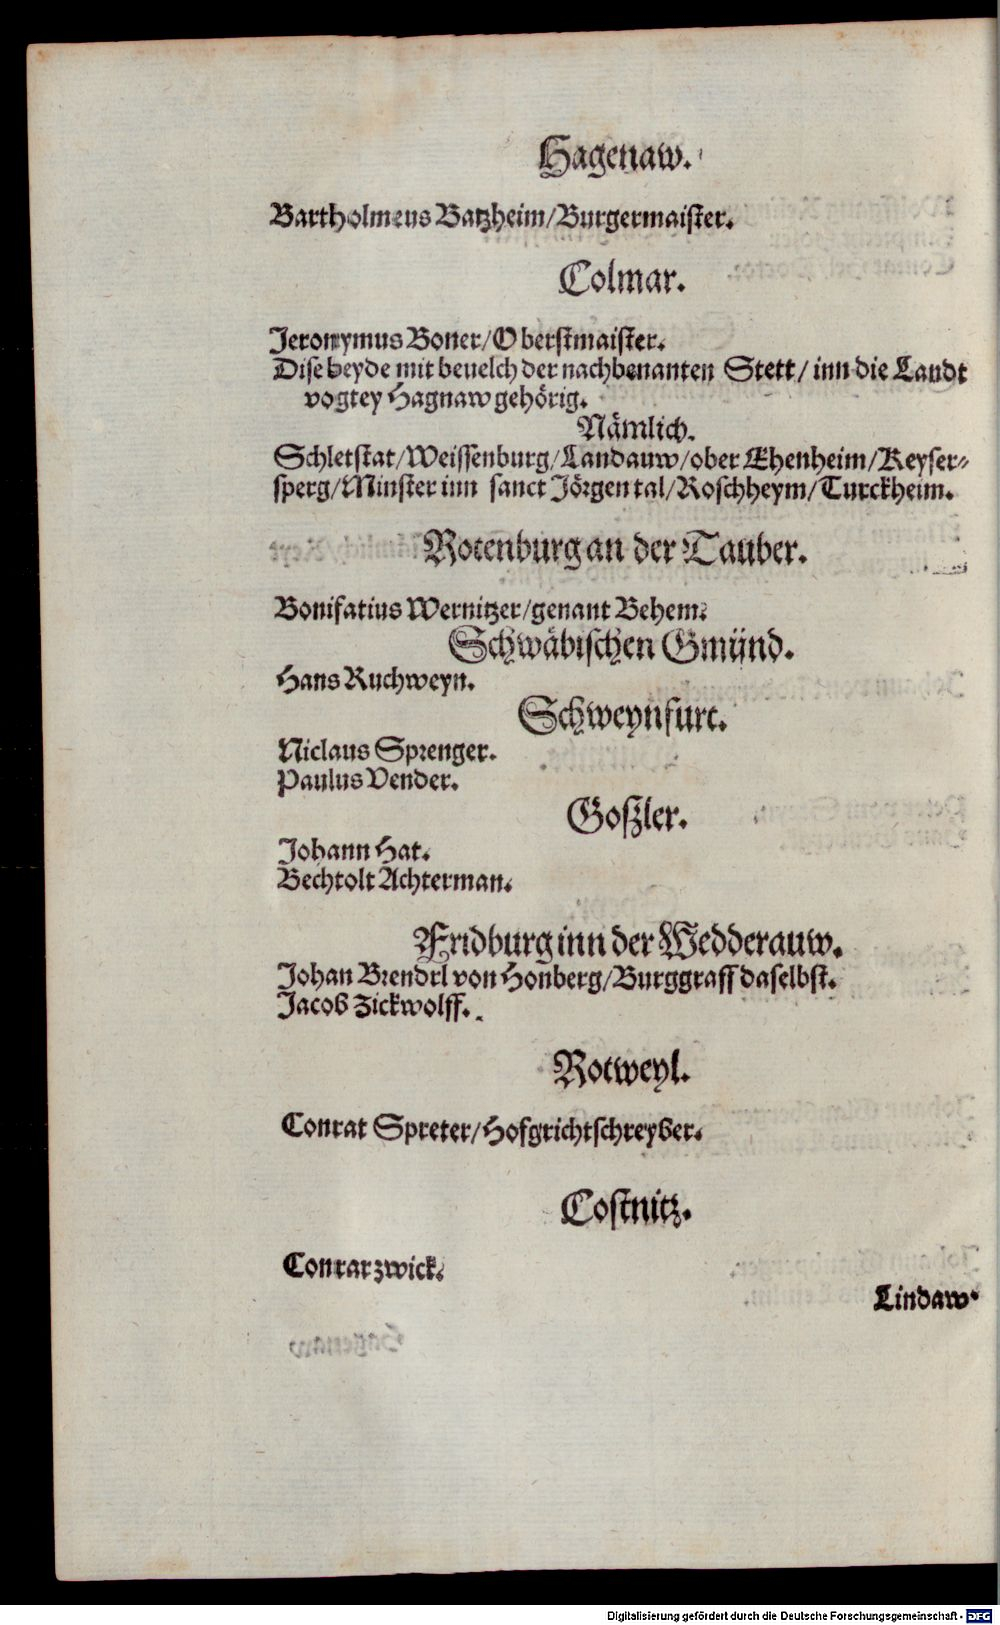 Hagenaw.
Bartholmeus Batzheim/Burgermaister.
Colmar.
Jeronymus Boner/Oberstmaister.
Dise beyde mit beuelch der nachbenanten Stett/ inn die Landt
vogtey Hagnaw gehörig.
Nämlich.
Schletstat/Weissenburg/Landauw/ober Ehenheim/Keyser-
sperg/Minster inn sanct Jörgental/Roschheym/Turckheim.
Rotenburg an der Tauber.
Bonifatius Wernitzer/genant Behem.
Schwäbischen Gmünd.
Hans Ruchweyn.
Schweynfurt.
Niclaus Sprenger.
Paulus Vender.
Goßler.
Johann Hat.
Bechtolt Achterman.
Fridburg inn der Wedderauw.
Johan Brendel von Honberg/Burggraff daselbst.
Jacob Zickwolff.
Rotweyl.
Conrat Spreter/Hofgrichtschreyber.
Costnitz.
Conrat zwick.
Lindaw.
Digitalisierung gefördert durch die Deutsche Forschungsgemeinschaft - DFG